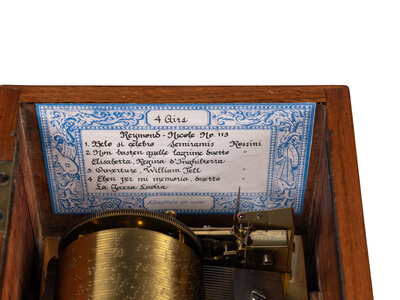 4 Airs
Reymond - Nicole No. 113
1. Belo si celebro Semiramis Rossini
2. Non basten quelle lagrime duetto "
Elisabetta, Regina d'Inghilterra
3 Ouverture, William Tell "
4 Eben per mi memoria, duetto
La Gazza Ladra